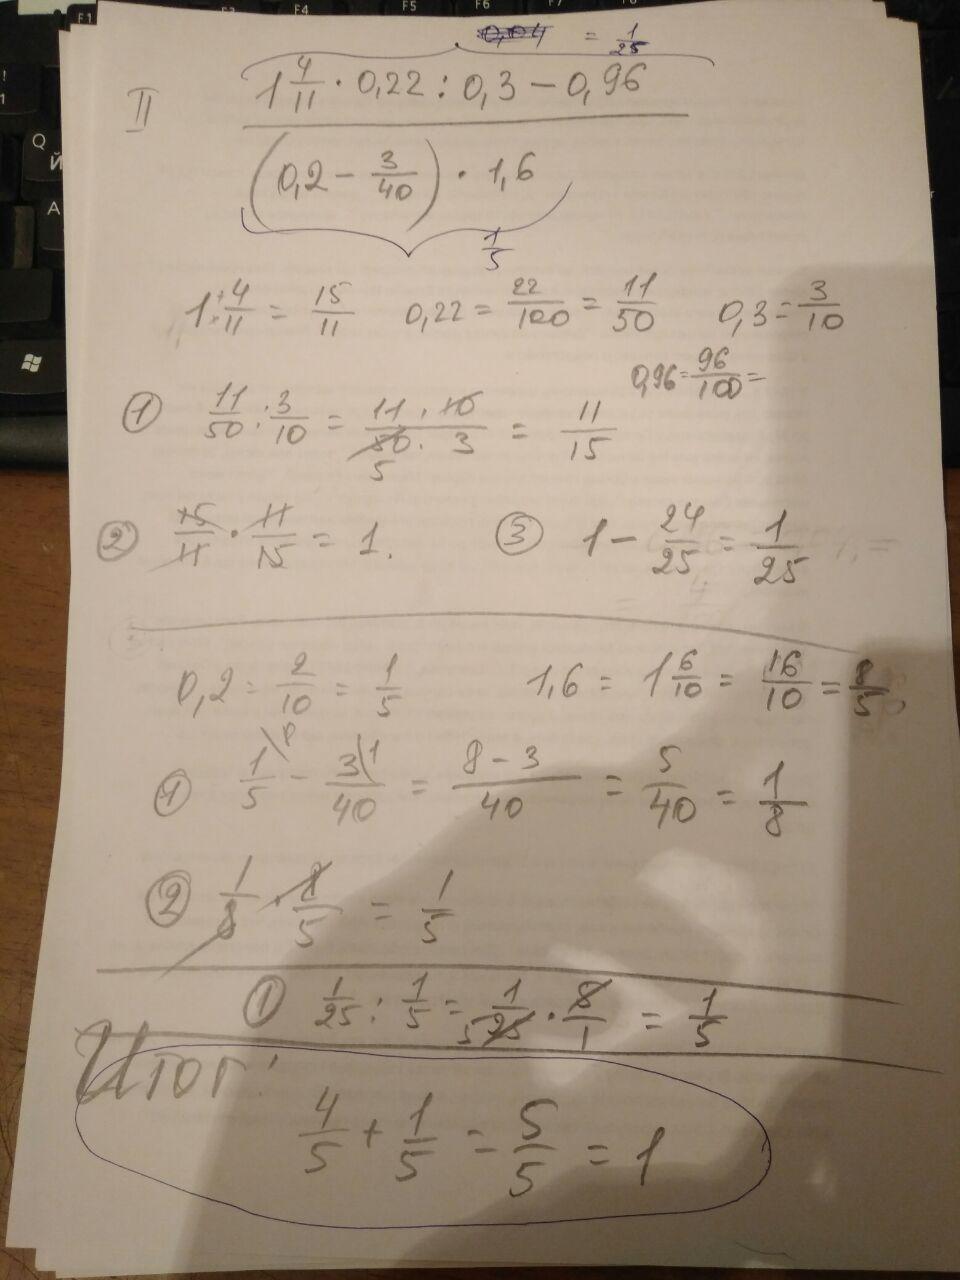 0,04 = 1/25
II
1 4/11 · 0,22 : 0,3 – 0,96
(0,2 – 3/40) · 1,6
1/5
1 + 4/11 = 15/11 0,22 = 22/100 = 11/50 0,3 = 3/10
0,96 = 96/100 =
① 11/50 : 3/10 = 11 · 10 / 50 · 3 = 11/15
5
② 15/11 · 11/15 = 1. ③ 1 – 24/25 = 1/25
0,2 = 2/10 = 1/5 1,6 = 1 6/10 = 16/10 = 8/5
① 1/5 \8 – 3/40 \1 = 8 – 3 / 40 = 5/40 = 1/8
② 1/8 · 8/5 = 1/5
① 1/25 : 1/5 = 1/25 · 5/1 = 1/5
5
Итог:
4/5 + 1/5 = 5/5 = 1